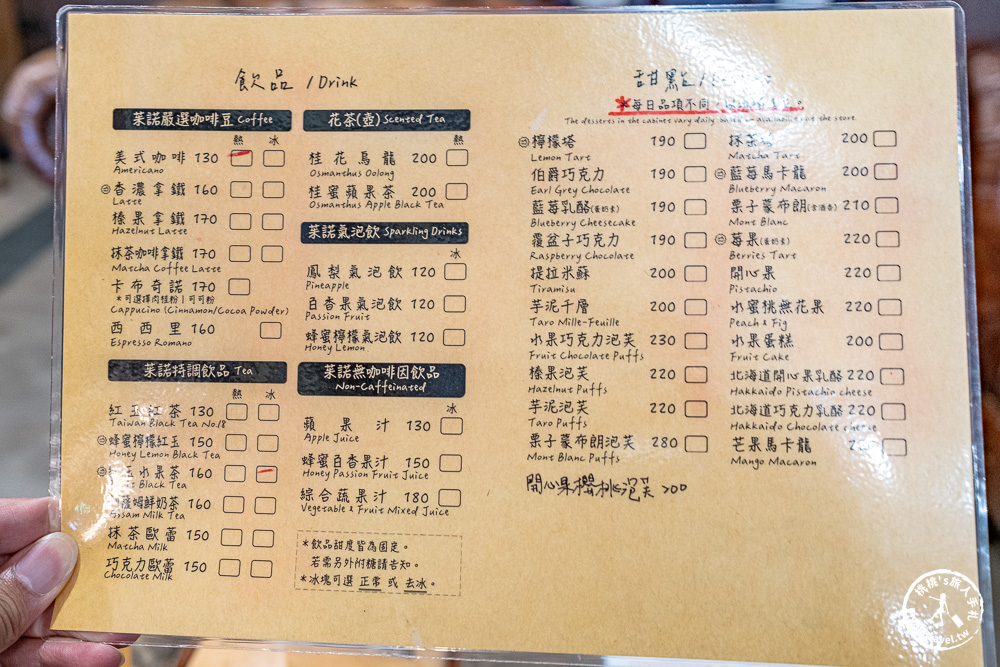 飲品 / Drink
萊諾嚴選咖啡豆 Coffee
熱 冰
美式咖啡 130
Americano
香濃拿鐵 160
Latte
榛果拿鐵 170
Hazelnut Latte
抹茶咖啡拿鐵 170
Matcha Coffee Latte
卡布奇諾 170
*可選擇肉桂粉|可可粉
Cappucino (Cinnamon/Cocoa Powder)
西西里 160
Espresso Romano
萊諾特調飲品 Tea
熱 冰
紅玉紅茶 130
Taiwan Black Tea No.18
蜂蜜檸檬紅玉 150
Honey Lemon Black Tea
玉水果茶 160
Black Tea
薩姆鮮奶茶 160
Assam Milk Tea
抹茶歐蕾 150
Matcha Milk
巧克力歐蕾 150
Chocolate Milk
花茶(壺) Scented Tea
熱
桂花烏龍 200
Osmanthus Oolong
桂蜜蘋果茶 200
Osmanthus Apple Black Tea
萊諾氣泡飲 Sparkling Drinks
冰
鳳梨氣泡飲 120
Pineapple
百香果氣泡飲 120
Passion Fruit
蜂蜜檸檬氣泡飲 120
Honey Lemon
萊諾無咖啡因飲品
Non-Caffeinated
冰
蘋果汁 130
Apple Juice
蜂蜜百香果汁 150
Honey Passion Fruit Juice
綜合蔬果汁 180
Vegetable & Fruit Mixed Juice
*飲品甜度皆為固定。
若需另外附糖請告知。
*冰塊可選 正常 或 去冰。
甜點 /
*每日品項不同，
The desserts in the cabinet vary daily, based on availability at the store
檸檬塔 190
Lemon Tart
伯爵巧克力 190
Earl Grey Chocolate
藍莓乳酪(蛋奶素) 190
Blueberry Cheesecake
覆盆子巧克力 190
Raspberry Chocolate
提拉米蘇 200
Tiramisu
芋泥千層 200
Taro Mille-Feuille
水果巧克力泡芙 230
Fruit Chocolate Puffs
榛果泡芙 220
Hazelnut Puffs
芋泥泡芙 220
Taro Puffs
栗子蒙布朗泡芙 280
Mont Blanc Puffs
開心果櫻桃泡芙 200
抹茶 200
Matcha Tart
藍莓馬卡龍 220
Blueberry Macaron
栗子蒙布朗(含酒香) 210
Mont Blanc
莓果(蛋奶素) 220
Berries Tart
開心果 220
Pistachio
水蜜桃無花果 220
Peach & Fig
水果蛋糕 200
Fruit Cake
北海道開心果乳酪 220
Hakkaido Pistachio cheese
北海道巧克力乳酪 220
Hakkaido Chocolate cheese
芒果馬卡龍
Mango Macaron
桃桃's旅人手札
travel.tw